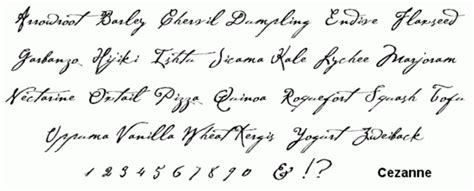 Arrowroot Barley Chervil Dumpling Endive Flaxseed
Garbanzo Hijiki Ishtu Jicama Kale Lychee Marjoram
Nectarine Oxtail Pizza Quinoa Roquefort Squash Tofu
Uppuma Vanilla Wheat Xergis Yogurt Zweiback
1 2 3 4 5 6 7 8 9 0 & ! ? Cezanne